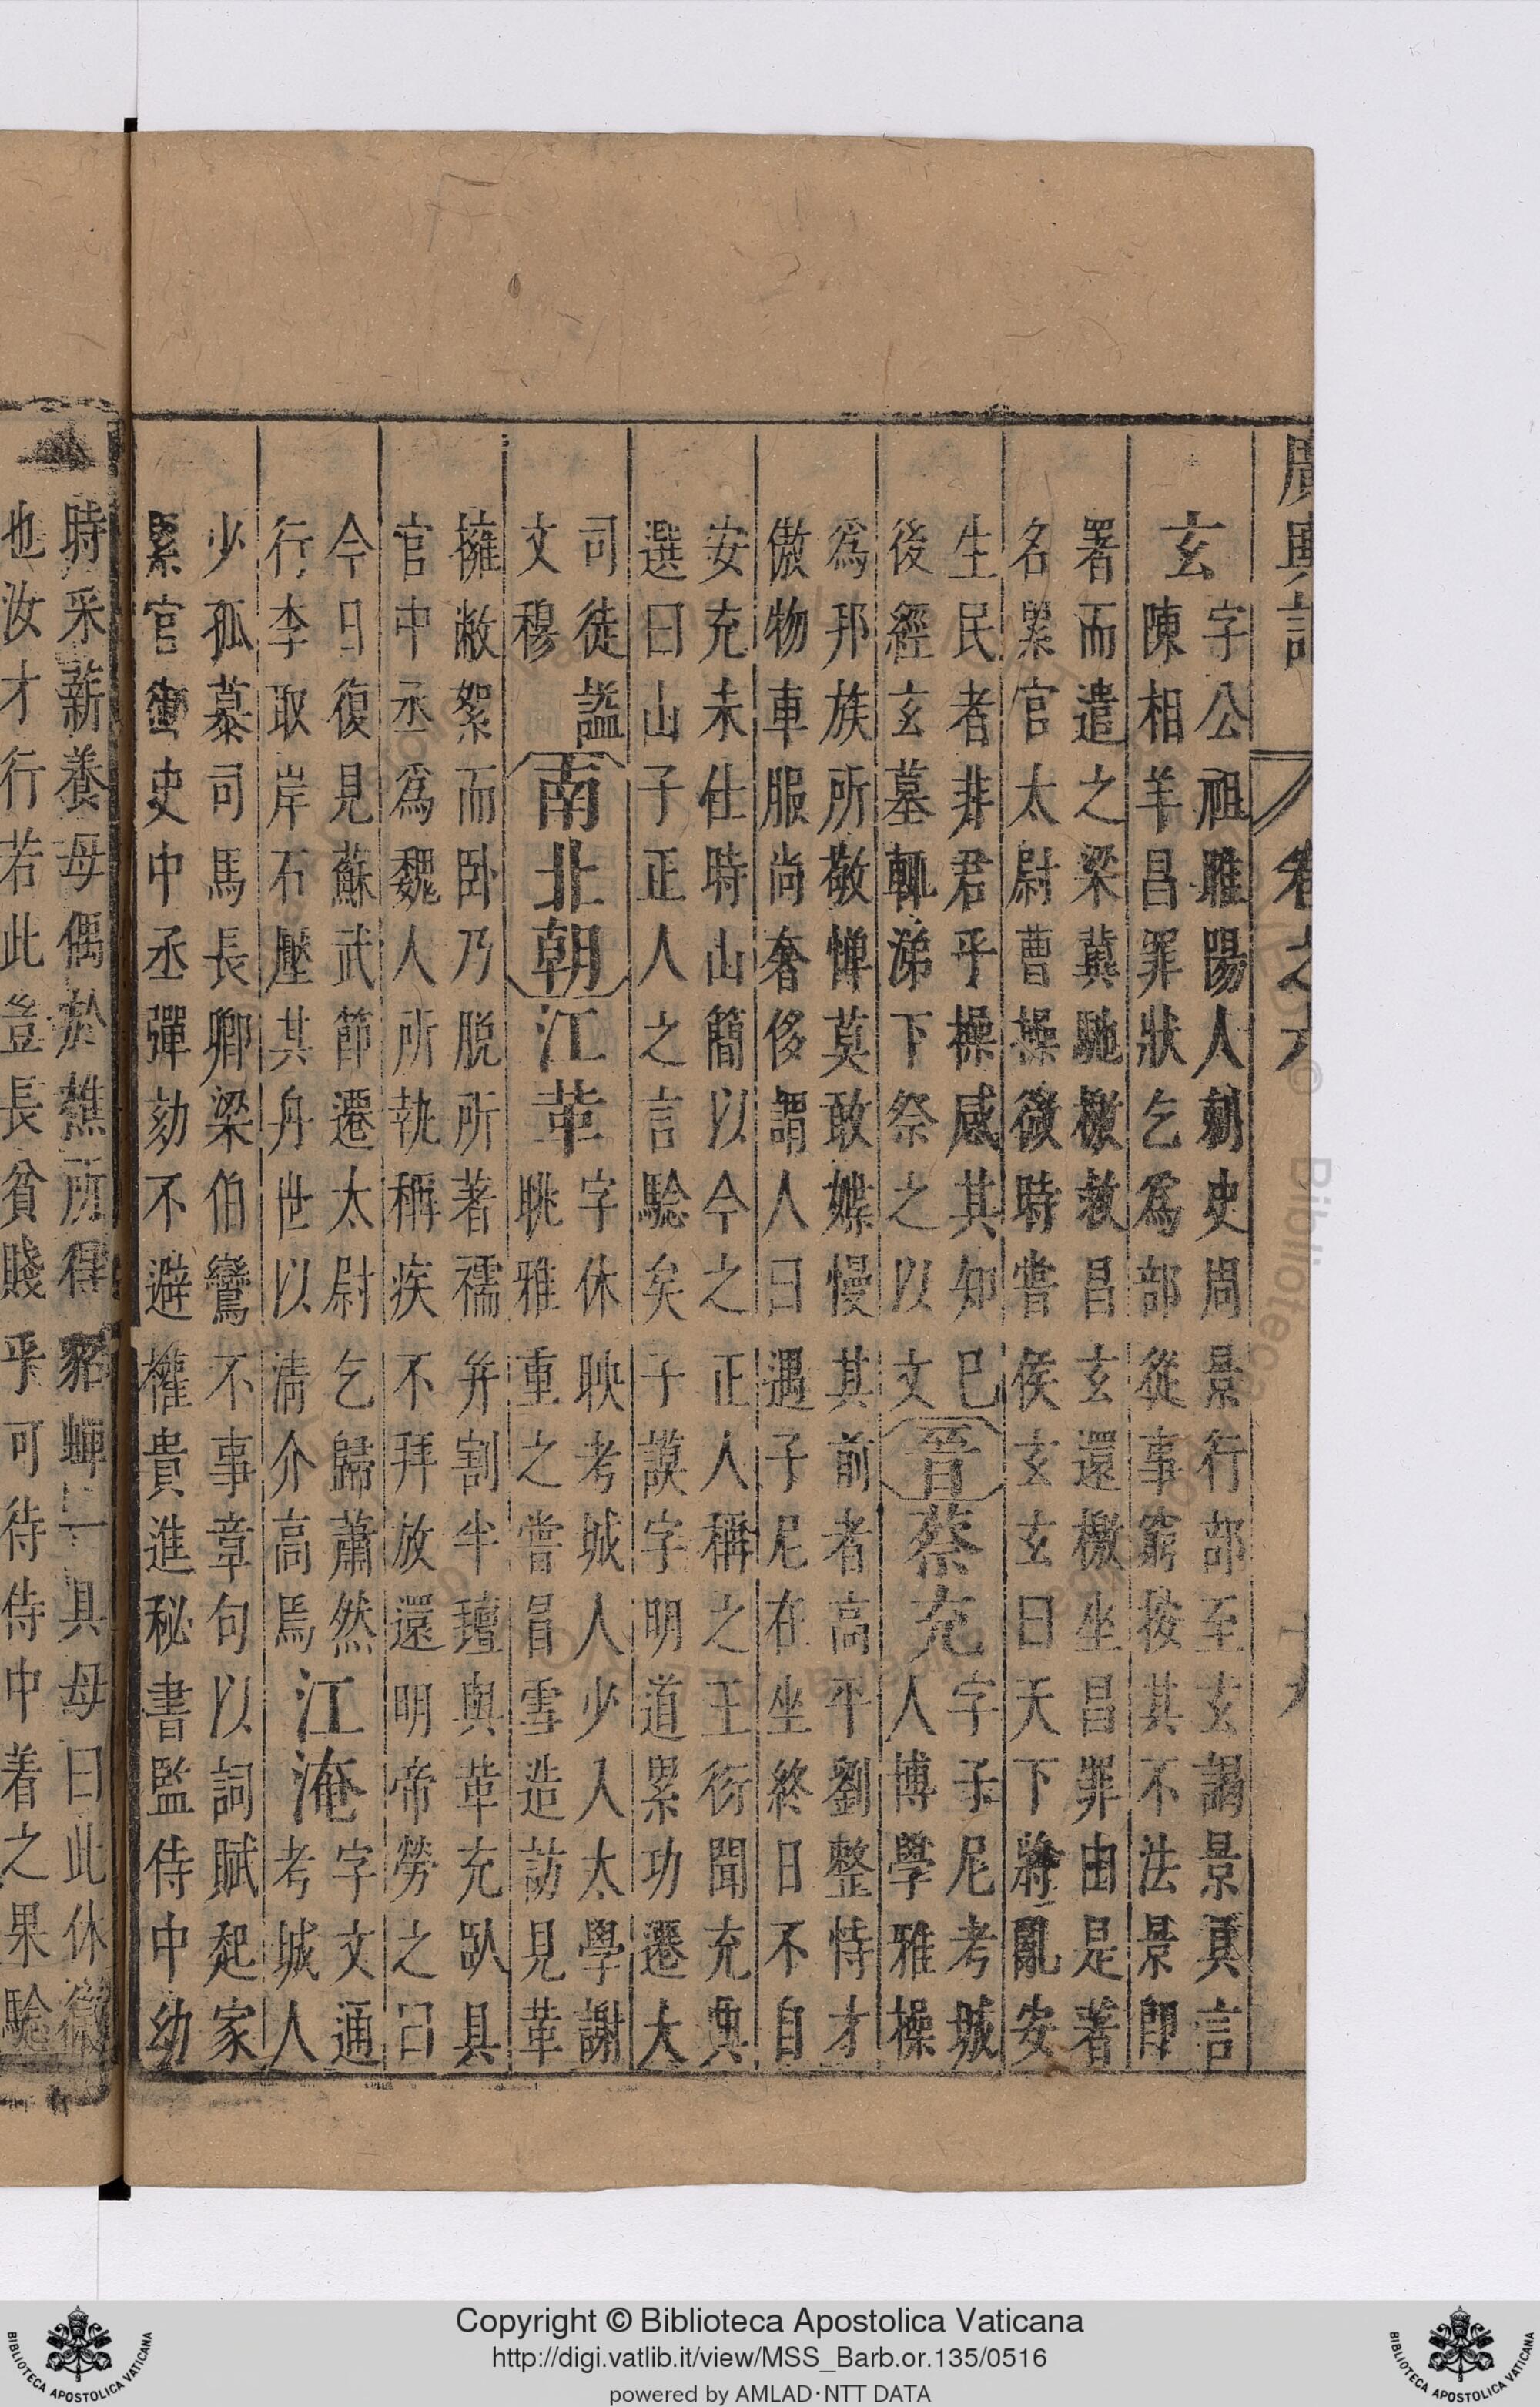 廣輿記
卷之六
玄
字公祖雎陽人刺史周景行部至玄謁景具言
陳相羊昌罪狀乞爲部從事窮按其不法景卽
署而遣之梁冀馳檄救昌玄還檄坐昌罪由是著
名累官太尉曹操微時嘗侯玄玄曰天下將亂安
生民者非君乎操感其知已
後經玄墓輒涕下祭之以文
晉
蔡充
字子尼考城
人博學雅操
爲邦族所敬憚莫敢媟慢其前者高平劉整恃才
傲物車服尚奢侈謂人曰遇子尼在坐終日不自
安充未仕時山簡以今之正人稱之王衍聞充典
選曰山子正人之言驗矣子謨字明道累功遷大
司徒謚
文穆
南北朝
江革
字休映考城人少入太學謝
朓雅重之嘗冒雪造訪見革
擁敝絮而卧乃脫所著襦并割半氊與革充臥具
官中丞爲魏人所執稱疾不拜放還明帝勞之曰
今日復見蘇武節遷太尉乞歸蕭然
行李取岸石壓其舟世以清介高焉
江淹
字文通
考城人
少孤慕司馬長卿梁伯鸞不事章句以詞賦起家
累官御史中丞彈劾不避權貴進秘書監侍中幼
時采薪養母偶於樵所得貂蟬一具母曰此休徵
也汝才行若此豈長貧賤乎可待侍中着之果驗
Copyright © Biblioteca Apostolica Vaticana
http://digi.vatlib.it/view/MSS_Barb.or.135/0516
powered by AMLAD·NTT DATA
BIBLIOTECA APOSTOLICA VATICANA
BIBLIOTECA APOSTOLICA VATICANA